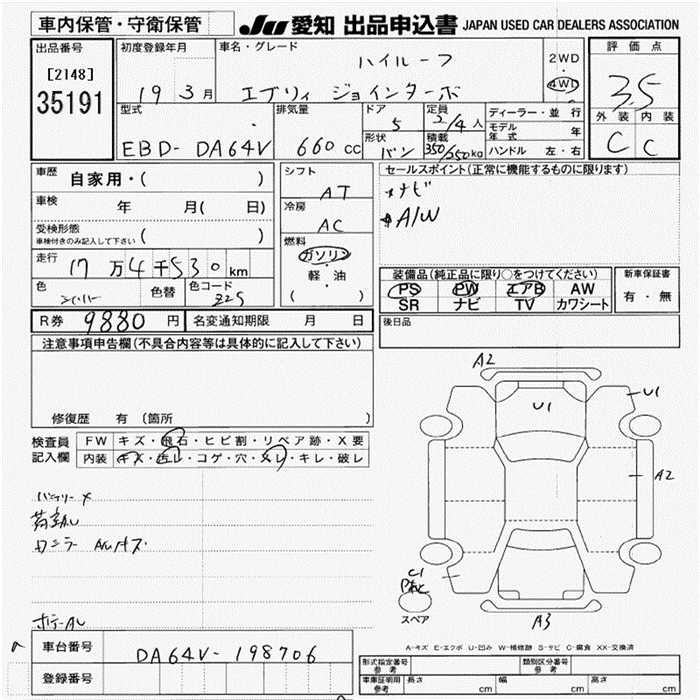 車内保管・守衛保管
JU 愛知 出品申込書 JAPAN USED CAR DEALERS ASSOCIATION
出品番号
[2148]
35191
初度登録年月
19 3月
車名・グレード
ハイルーフ
エブリィ ジョインターボ
2WD
4WD
評価点
3.5
外装 内装
C C
型式
EBD- DA64V
排気量
660 cc
ドア
5
定員
2/4人
形状
バン
積載
350/250kg
ディーラー・並行
モデル年式 年
ハンドル 左・右
車歴 自家用・( )
車検 年 月( 日)
受検形態
車検付きのみ記入して下さい ( )
走行
17万4千530km
色
シルバー
色替
色コード
Z2S
シフト
AT
冷房
AC
燃料
ガソリン
軽・油
( )
セールスポイント(正常に機能するものに限ります)
ナビ
A/W
装備品(純正品に限り○をつけてください)
PS PW エアB AW
SR ナビ TV カワシート
新車保証書
有・無
R券 9880円 名変通知期限 月 日
後日品
注意事項申告欄(不具合内容等は具体的に記入して下さい)
修復歴 有(箇所 )
検査員記入欄
FW キズ・飛石・ヒビ割・リペア跡・X要
内装 キズ・汚レ・コゲ・穴・スレ・キレ・破レ
バッテリー×
AWキズ
ボデーAU
A2
U1
U1
A2
C1
A3
スペア
A-キズ E-エクボ U-凹み W-補修跡 S-サビ C-腐食 XX-交換済
車台番号 DA64V-198706
登録番号
形式指定番号 参考
類別区分番号 参考
車庫証明用 参考 長さ cm 幅 cm 高さ cm